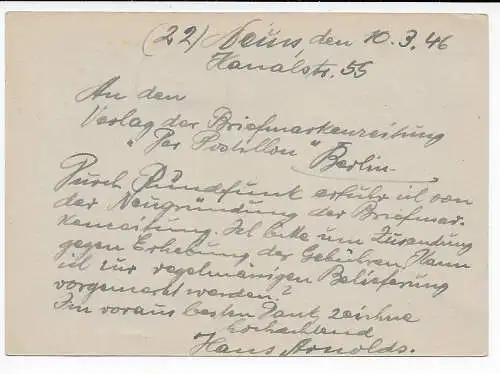 (22) Neuss, den 10.3.46
Kanalstr. 55
An den
Verlag der Briefmarkenzeitung
"Der Postillon" Berlin
Durch Rundfunk erfuhr ich von
der Neugründung der Briefmar-
kenzeitung. Ich bitte um Zusendung
gegen Erhebung der Gebühren. Kann
ich zur regelmäsigen Belieferung
vorgemerkt werden?
Im voraus besten Dank, zeichne
hochachtend
Hans Arnolds.